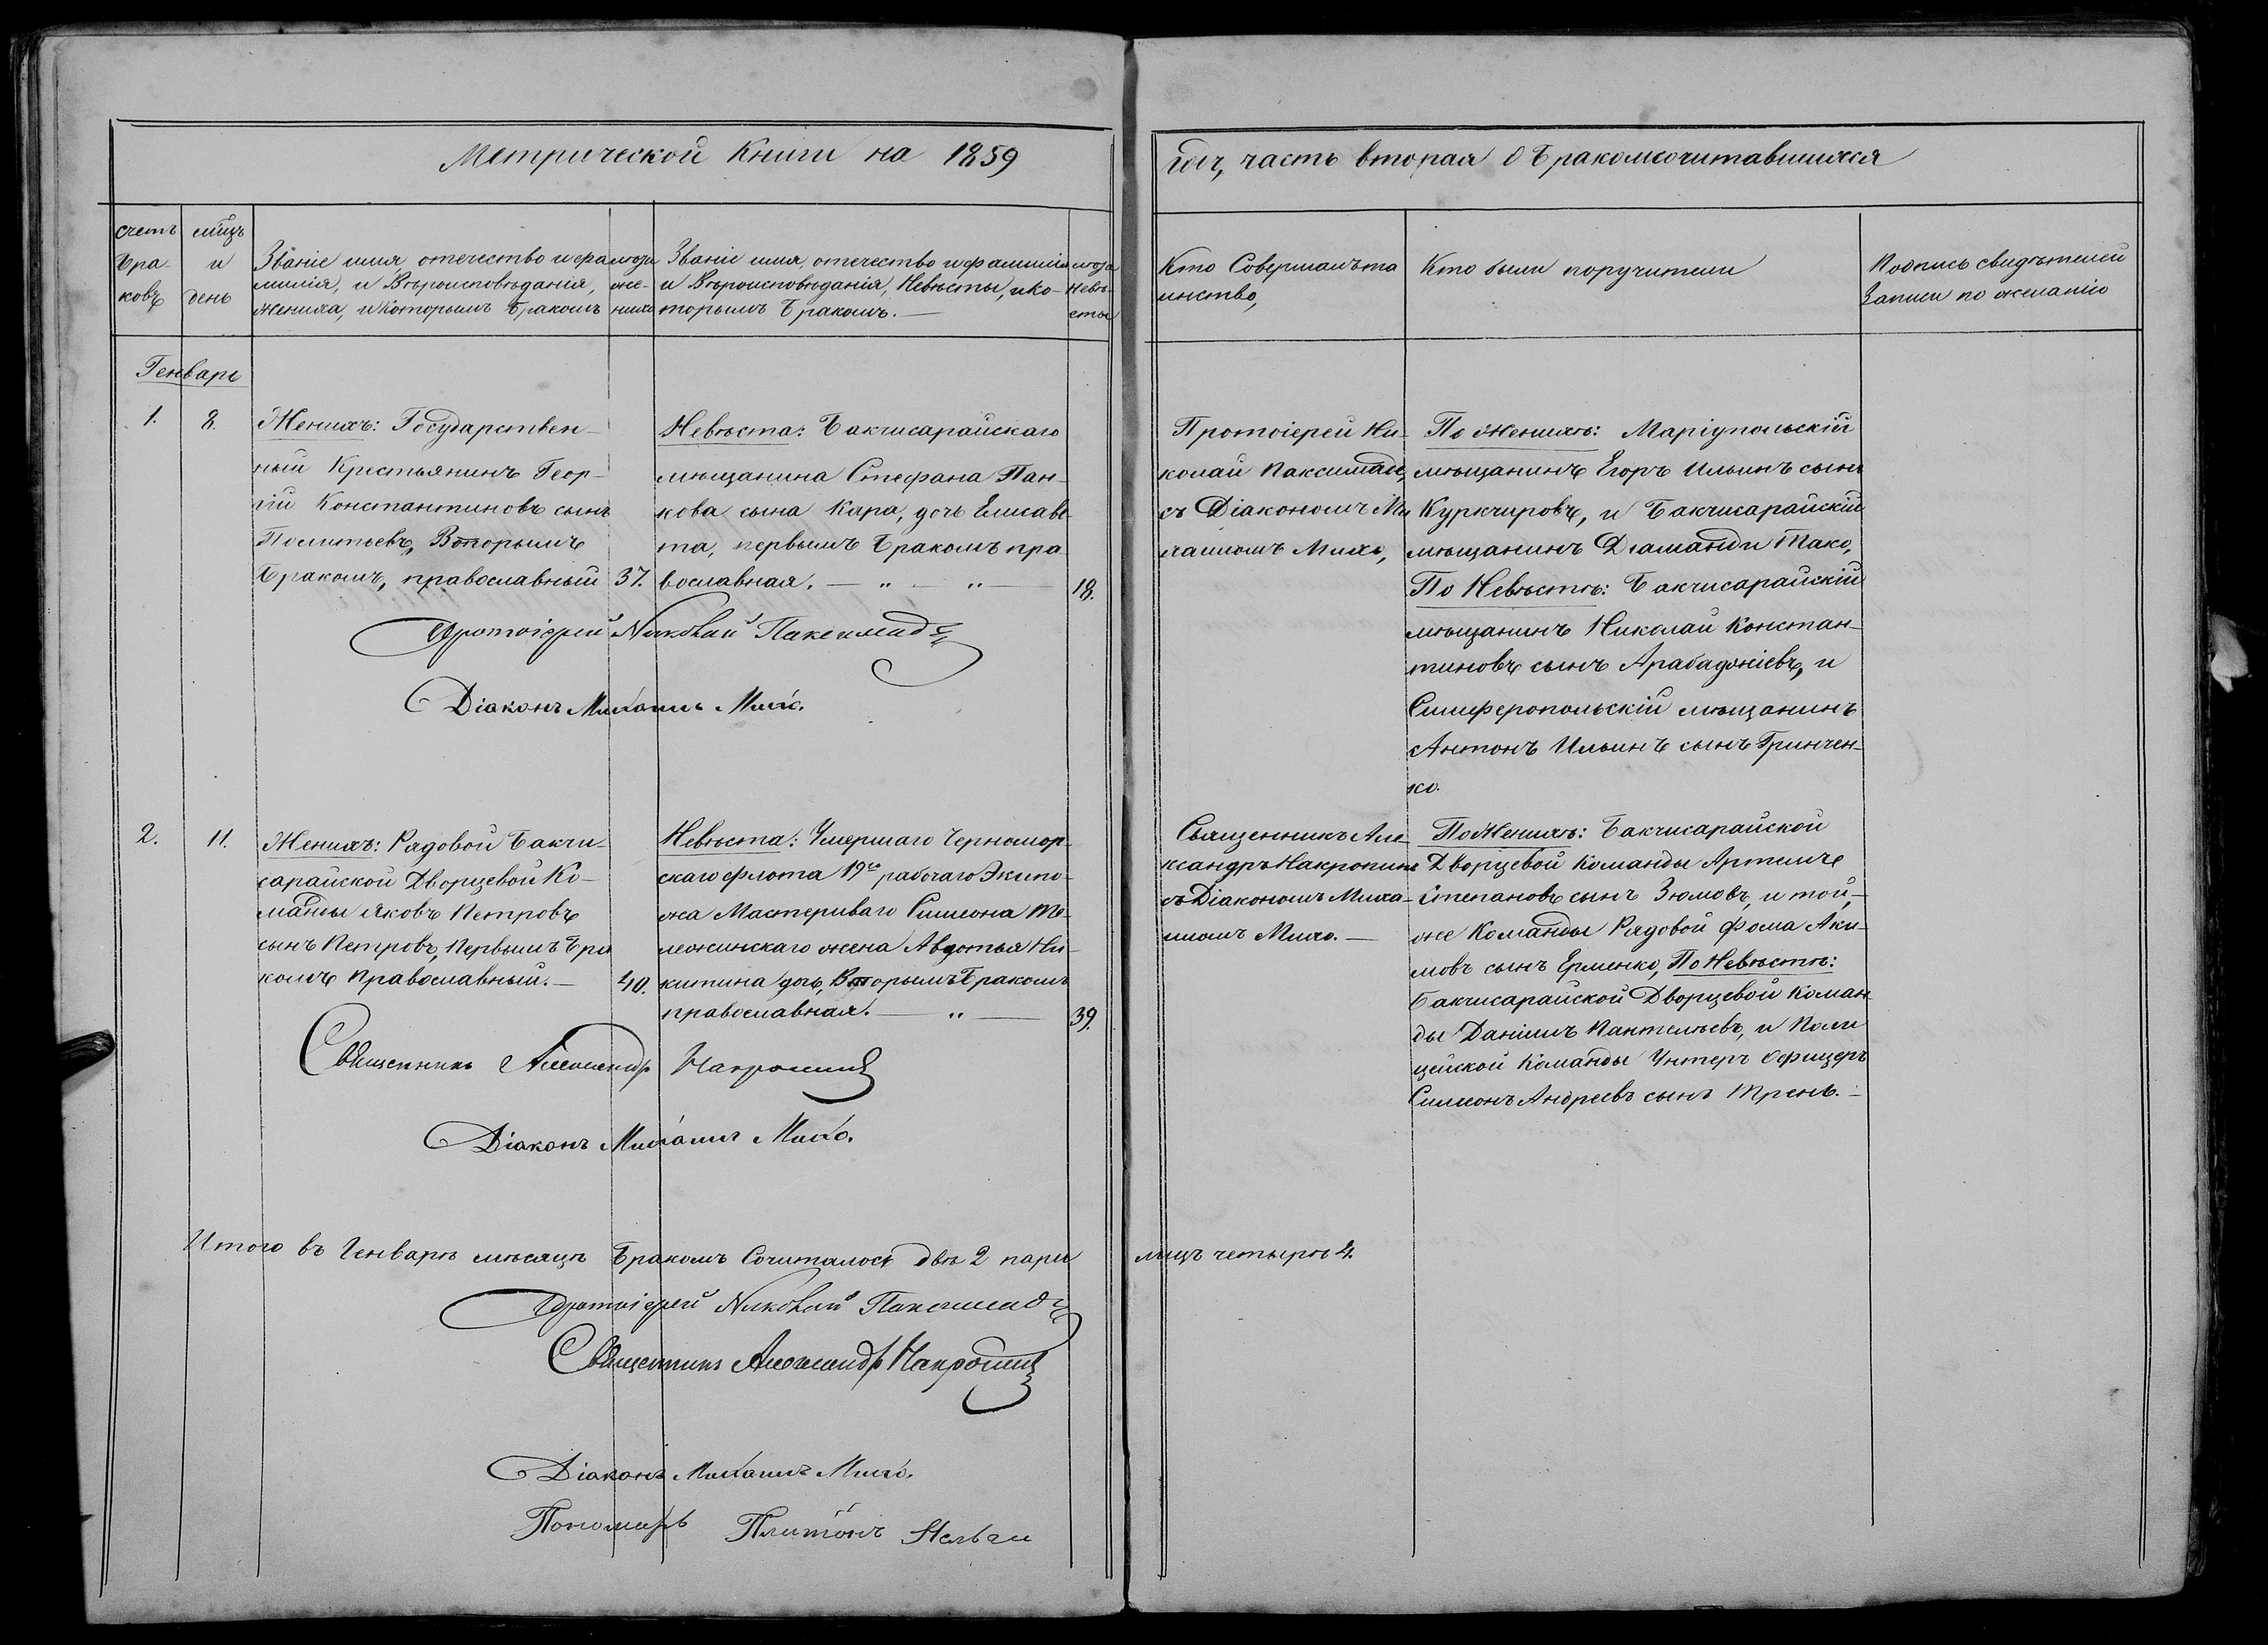 Метрической Книги на 1859
годъ, часть вторая О бракомсочитавшихся
счетъ
бра-
ковъ
мѣцъ
и
день
Званіе имя, отечество и фа
милія, и Вѣроисповѣданія,
Жениха, и Которымъ бракомъ
лѣта
же-
ниха
Званіе имя, отечество и фамилія
и Вѣроисповѣданія, Невѣсты, и ко-
торымъ бракомъ. —
лѣта
Невѣ-
сты
Кто Совершалъ та
инство,
Кто были поручители
Подпись свидѣтелей
Записи по желанію
Генварь
1. 8.
Женихъ: Государствен-
ный Крестьянинъ Геор-
гій Константиновъ сынъ
Вторымъ
бракомъ, православный 37.
Невѣста: Бакчисарайскаго
мѣщанина Стефана Пан-
кова сына Кара, дочь Елисаве-
та, первымъ бракомъ пра
вославная. — „ — „ 18.
Протоіерей Ни-
колай Паксимади,
съ Діакономъ Ми
хаиломъ Михо,
По Женихѣ: Маріупольскій
мѣщанинъ Егоръ Ильинъ сынъ
Куркчировъ, и Бакчисарайскій
мѣщанинъ Діаманди Тако,
По Невѣстѣ: Бакчисарайскій
мѣщанинъ Николай Констан-
тиновъ сынъ Арабаджіевъ, и
Симферопольскій мѣщанинъ
Антонъ Ильинъ сынъ Гринчен-
ко.
Протоіерей Николай Паксимади
Діаконъ Михаилъ Михо.
2. 11.
Женихъ: Рядовой Бакчи-
сарайской Дворцевой Ко-
манды Яковъ Петровъ
сынъ Петровъ, Первымъ бра
комъ Православный. — 40.
Невѣста: Умершаго Черномор-
скаго флота 19го рабочаго Экипа-
жа Мастероваго Симеона
жена Авдотья Ни-
китина дочь, Вторымъ бракомъ
православная. — „ — 39.
Священникъ Але-
ксандръ Накропинъ
съ Діакономъ Миха-
иломъ Михо. —
По Женихѣ: Бакчисарайской
Дворцевой Команды Артемъ
Степановъ сынъ Зюмовъ, и той-
же Команды Рядовой Фома Аки-
мовъ сынъ Ерменко, По Невѣстѣ:
Бакчисарайской Дворцевой Коман-
ды Даніилъ Пантелѣевъ, и Поли
цейской Команды Унтеръ Офицеръ
Симеонъ Андреевъ сынъ Трень. —
Священникъ Александръ Накропинъ
Діаконъ Михаилъ Михо.
Итого въ Генварѣ мѣсяцѣ бракомъ Сочиталось двѣ 2 пары лицъ четыре 4.
Протоіерей Николай Паксимади
Священникъ Александръ Накропинъ
Діаконъ Михаилъ Михо.
Пономарь Платонъ